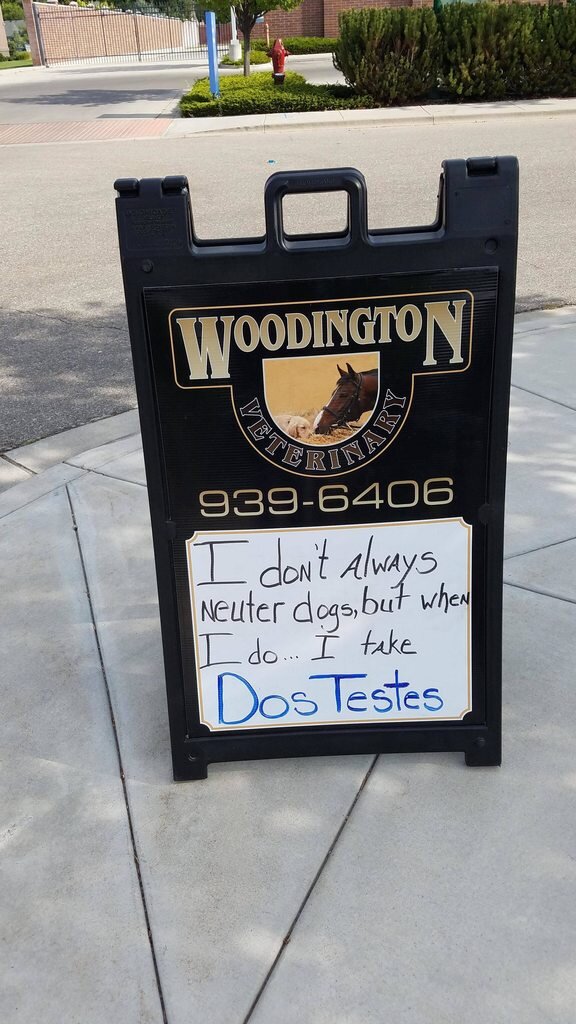 WOODINGTON
VETERINARY
939-6406
I don't always
neuter dogs, but when
I do... I take
Dos Testes